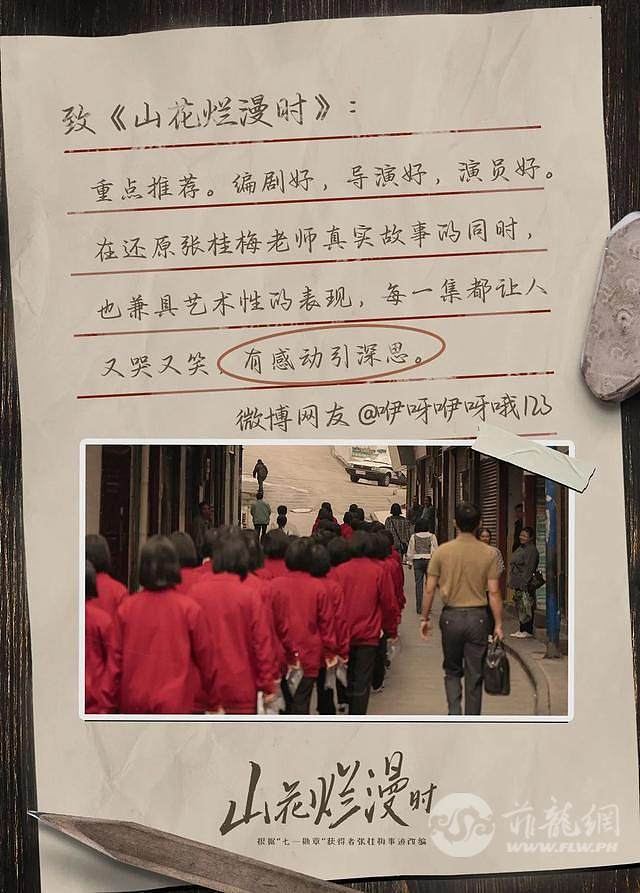 致《山花烂漫时》：
重点推荐。编剧好，导演好，演员好。
在还原张桂梅老师真实故事的同时，
也兼具艺术性的表现，每一集都让人
又哭又笑，有感动引深思。
微博网友@咿呀咿呀哦123
山花烂漫时
根据“七一勋章”获得者张桂梅事迹改编
菲龍網
WWW.FLW.PH